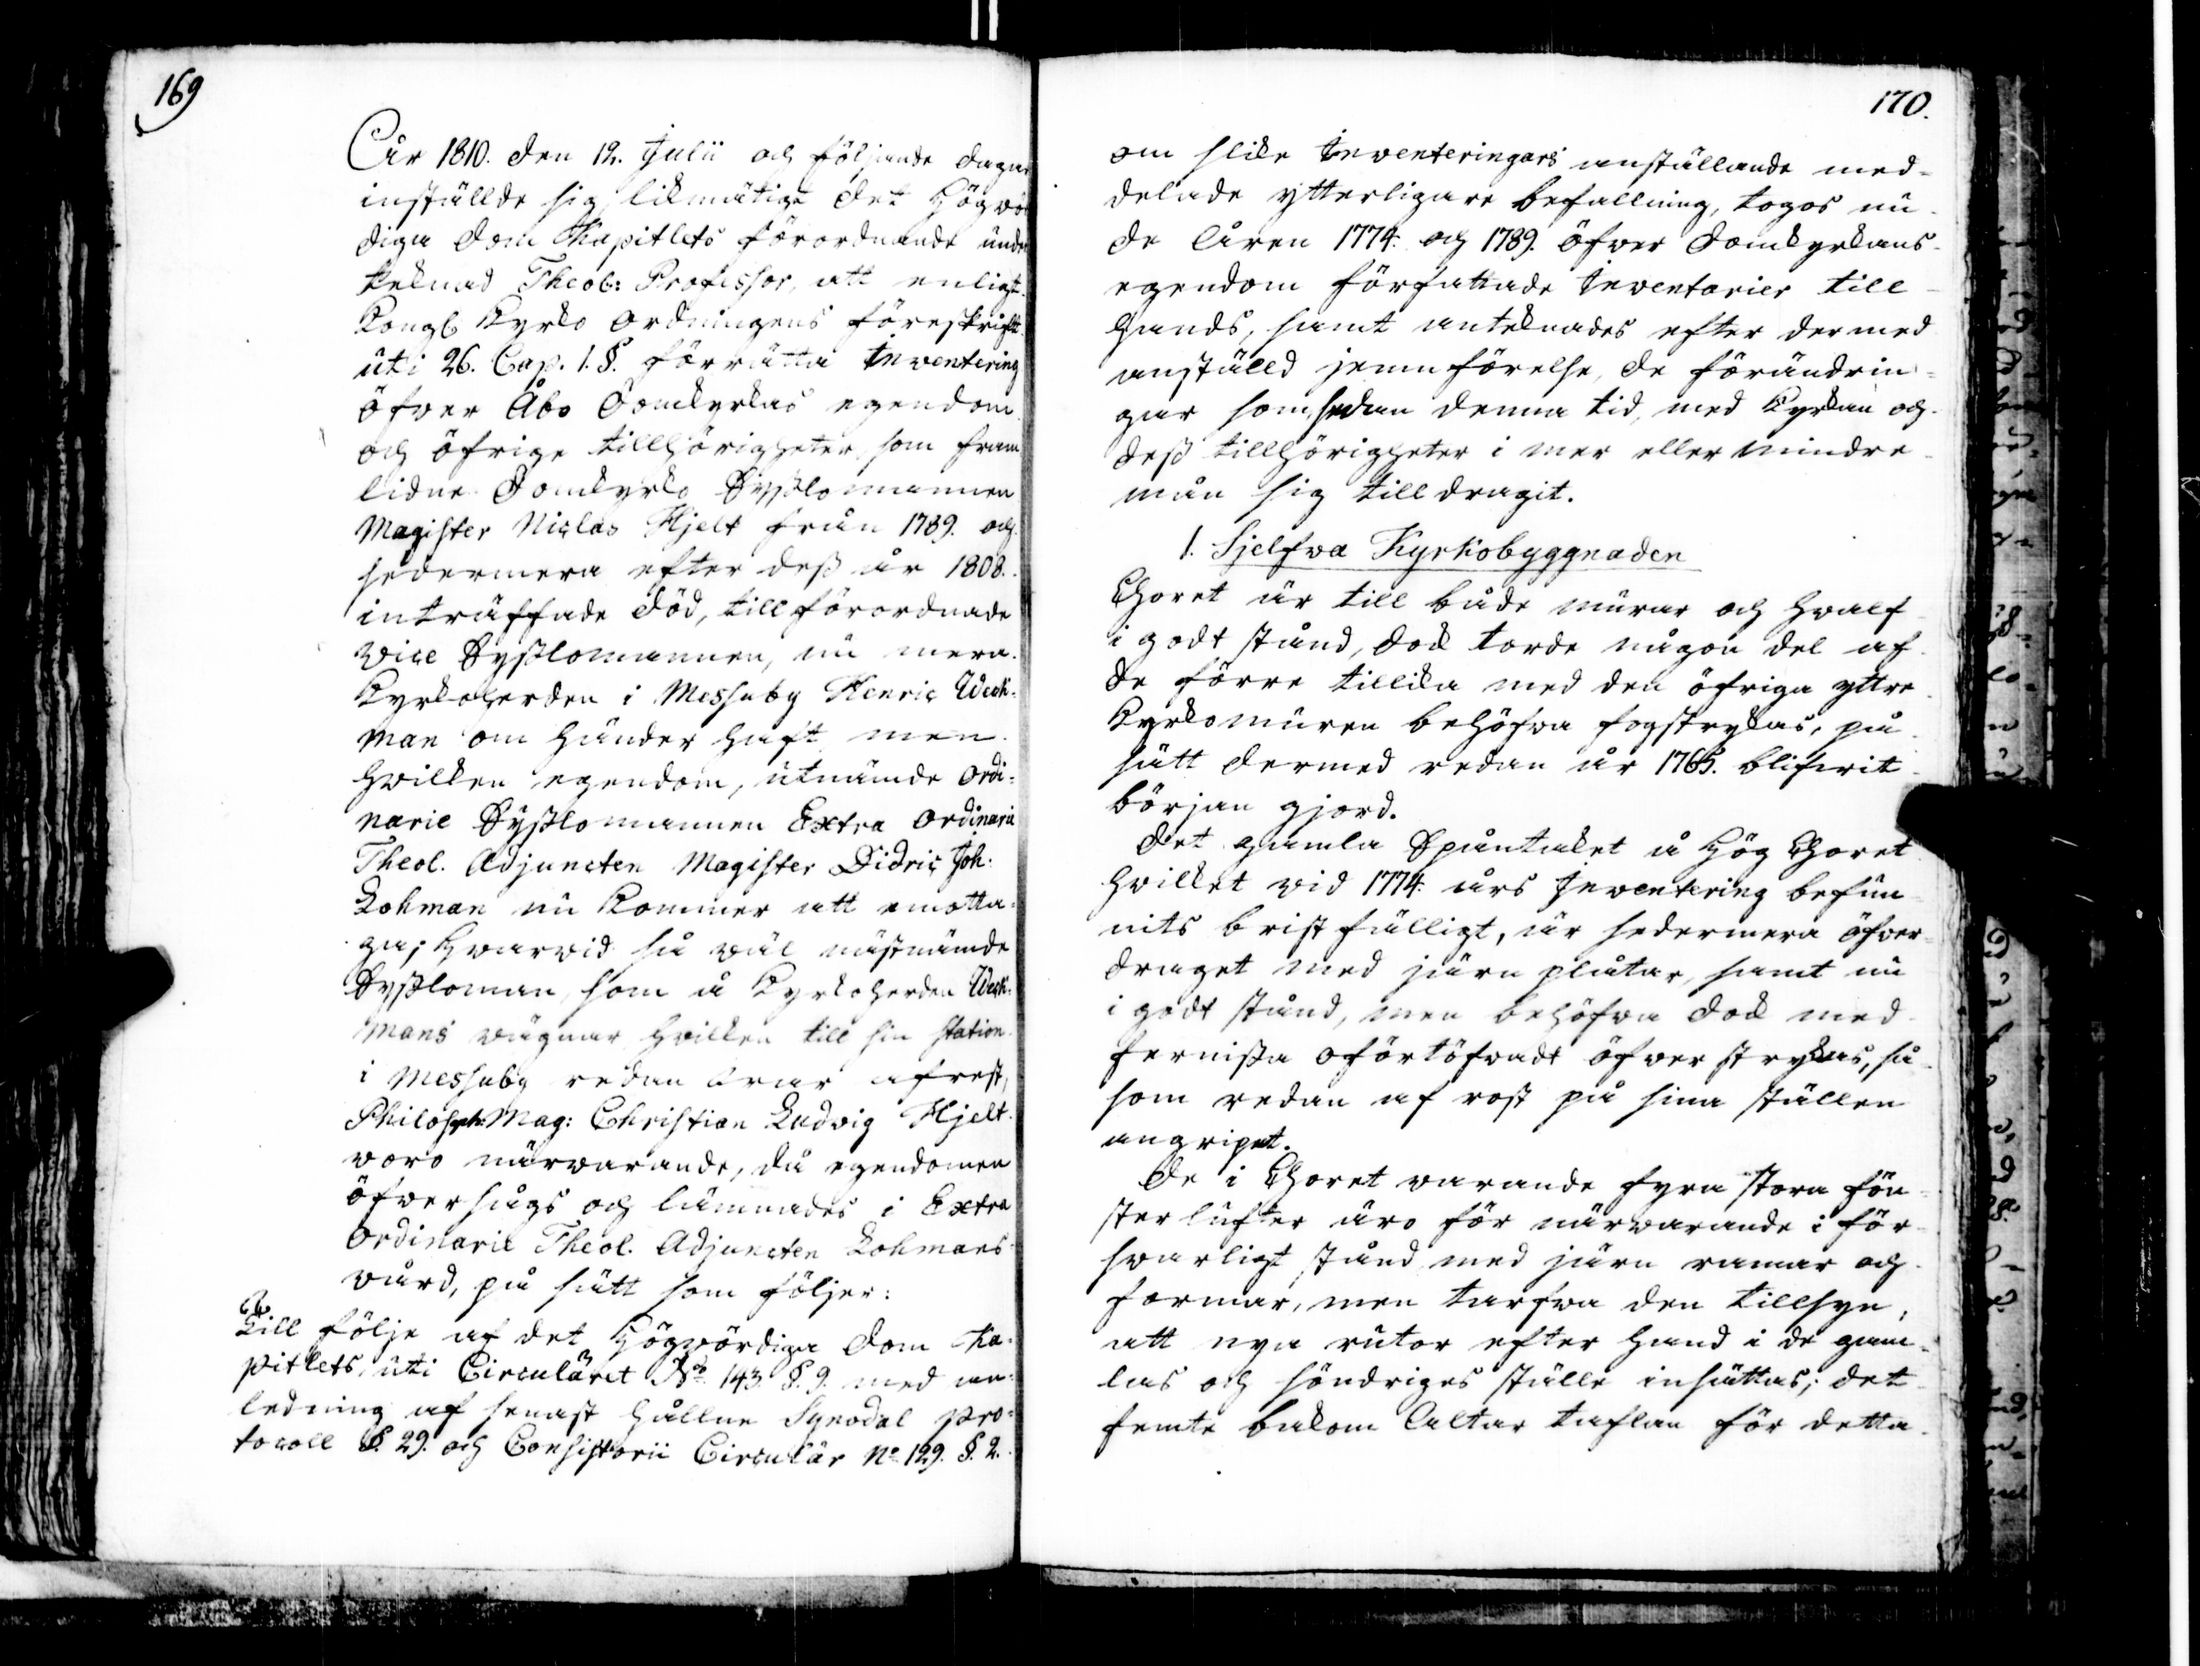 169
År 1810. den 12. Julii och följande dagar
inställde sig likmätigt det Högvör
diga Dom Kapitlets förordnande under
teknad Theol: Professor, att enligt
Kongl. Kyrko Ordningens föreskrift
uti 26. Cap. 1. §. förrätta Inventering
öfver Åbo Domkyrkas egendom
och öfrige tillhörigheter som fram
lidne Domkyrko Sysslomannen
Magister Niclas Hjelt från 1789. och
sedermera efter dess år 1808.
inträffade död, tillförordnade
vice Sysslomannen, nu mera
Kyrkoherden i Messuby Henric Weck-
man om händer haft men
hvilken egendom, utnämde Ordi-
narie Sysslomannen Extra Ordinarie
Theol. Adjuncten Magister Didric Joh:
Lohman nu kommer att emotta-
ga; Hvarvid så väl nästnämde
Syssloman, som å Kyrkoherden Weck-
mans vägnar hvilken till sin station
i Messuby redan var afrest,
Philosoph: Mag: Christian Ludvig Hjelt
voro närvarande, då egendomen
öfversågs och lämnades i Extra
Ordinarie Theol. Adjuncten Lohmans
vård, på sätt som följer:
Till följe af det Högvördiga Dom Ka-
pitlets, uti Circuläret No 143 §. 9. med an-
ledning af senast hållne Synodal Pro-
tocoll §. 29. och Consistorii Circulär No 129. §. 2.
170.
om slike Inventeringars anställande med-
delade ytterligare befallning, togos nu
de Åren 1774. och 1789. öfver Domkyrkans
egendom författade Inventarier till
hands, samt anteknades efter dermed
anställd jemnförelse, de förändrin-
gar som sedan denna tid, med Kyrkan och
dess tillhörigheter i mer eller mindre
mån sig tilldragit.
1. Sjelfva Kyrkobyggnaden
Choret är till både murar och hvalf
i godt stånd, dock torde någon del af
de förre tillika med den öfriga yttre
Kyrkomuren behöfva fogstrykas, på
sätt dermed redan år 1765. blifvit
början gjord.
Det gamla Spåntaket å Hög Choret
hvilket vid 1774. års Inventering befun
nits bristfälligt, är sedermera öfver
draget med järn plåtar, samt nu
i godt stånd, men behöfva dock med
fernissa oförtöfvadt öfver strykas, så
som redan af rost på sina ställen
angripet.
De i Choret varande fyra stora fön
ster lufter äro för närvarande i för-
svarligt stånd med järn ramar och
formar, men tarfva den tillsyn,
att nya rutor efter hand i de gam-
las och söndriges ställe insättas; det
femte bakom Altar taflan för detta